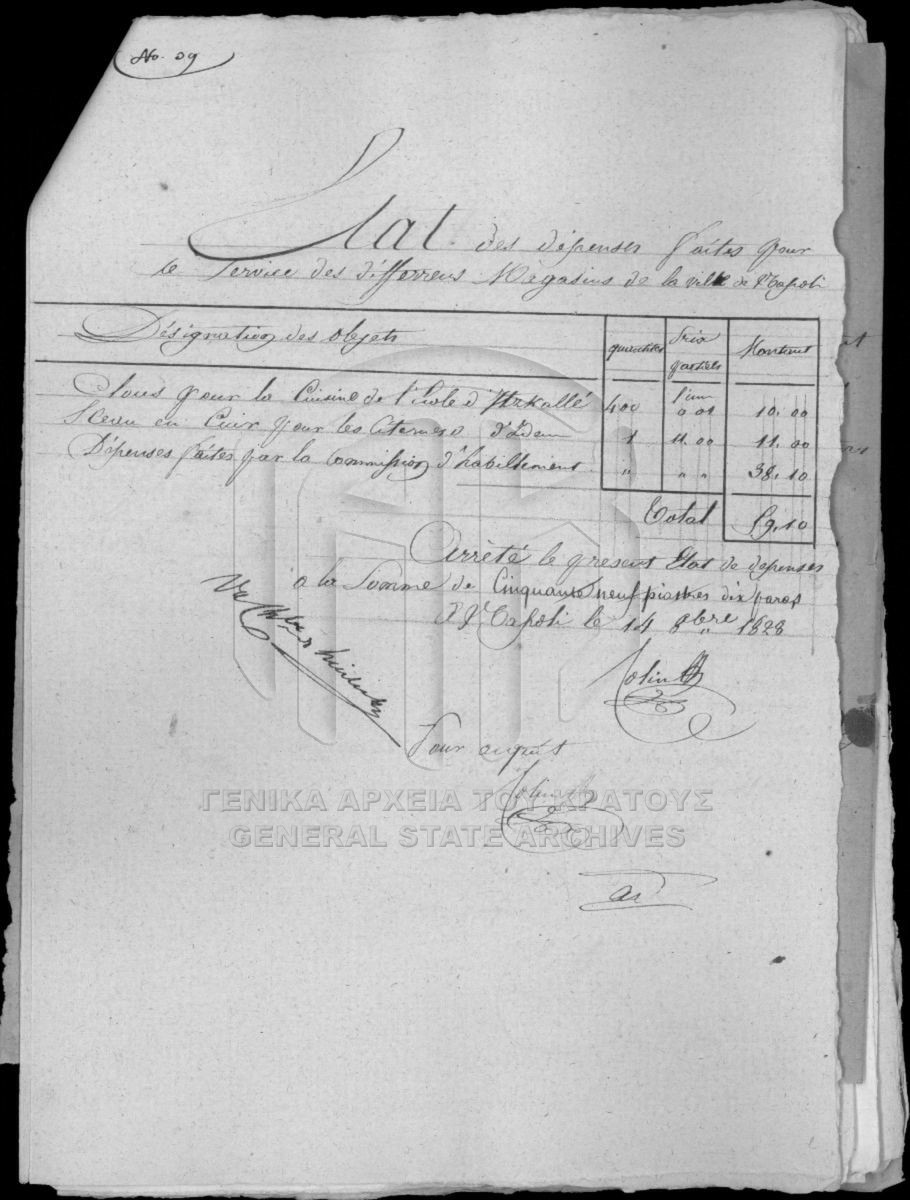 No. 59
Etat des dépenses faites pour
le Service des differrens Magasins de la ville de Napoli
Désignation des objets quantités Prix partiels Montant
Clous pour la Cuisine de l'Ecole d'Itzkallé 400 l'un 0.01 10.00
Sceau en Cuir pour les Citernes d' 1 11.00 11.00
Dépenses faites par la Commission d'habillement " " " 38.10
Total 59.10
Arrêté le présent Etat de depenses
a la Somme de Cinquante neuf piastres dix paras
Napoli le 14 8bre 1828
Vu
Pour acquit
ΓΕΝΙΚΑ ΑΡΧΕΙΑ ΤΟΥ ΚΡΑΤΟΥΣ
GENERAL STATE ARCHIVES